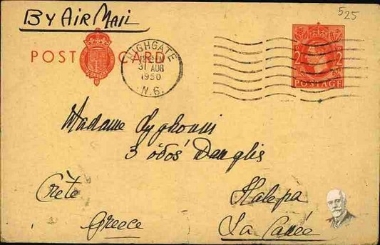 By Air Mail
525
POST CARD
HIGHGATE
31 AUG
1950
N.6.
2 2
POSTAGE
Madame
3 ὁδός
Crète
Halepa
Greece
La Canée